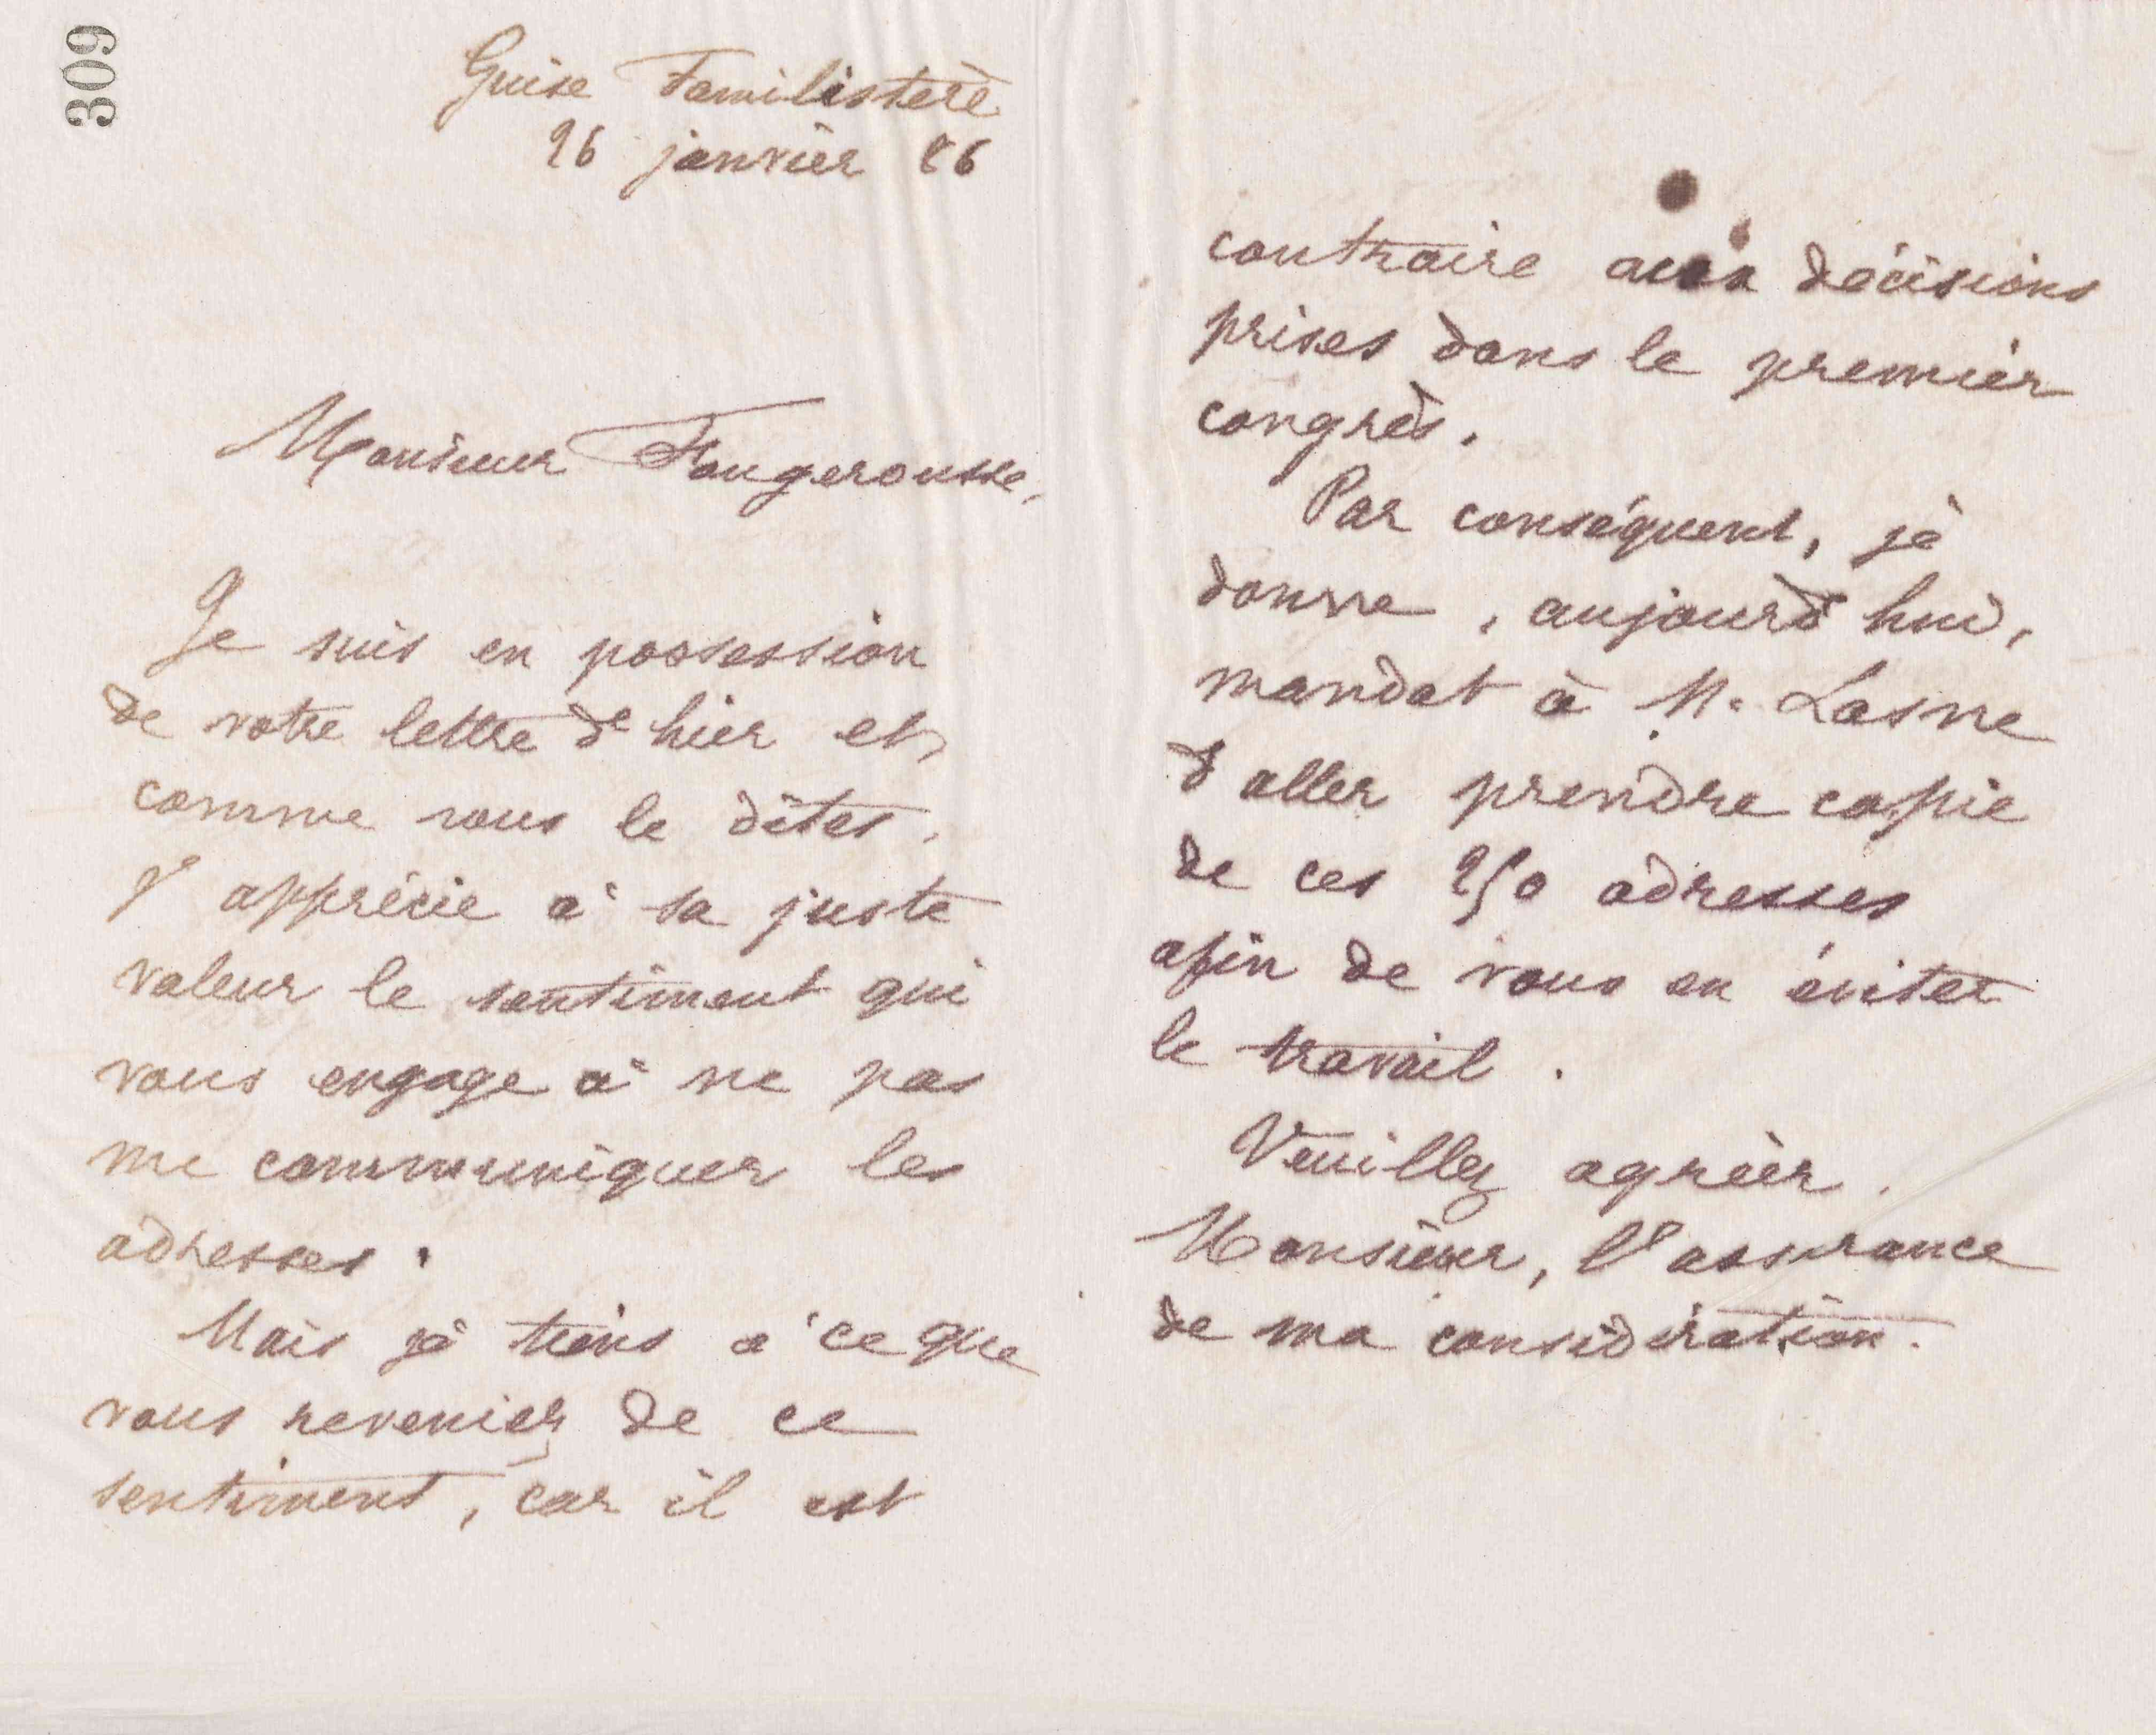 309
Guise Familistère
26 janvier 86
Monsieur Fougerousse,
Je suis en possession
de votre lettre d'hier et,
comme vous le dites,
j'apprécie à sa juste
valeur le sentiment qui
vous engage à ne pas
me communiquer les
adresses.
Mais je tiens à ce que
vous reveniez de ce
sentiment, car il est
contraire aux décisions
prises dans le premier
congrès.
Par conséquent, je
donne, aujourd'hui,
mandat à M. Lasne
d'aller prendre copie
de ces 250 adresses
afin de vous en éviter
le travail.
Veuillez agréer,
Monsieur, l'assurance
de ma considération.